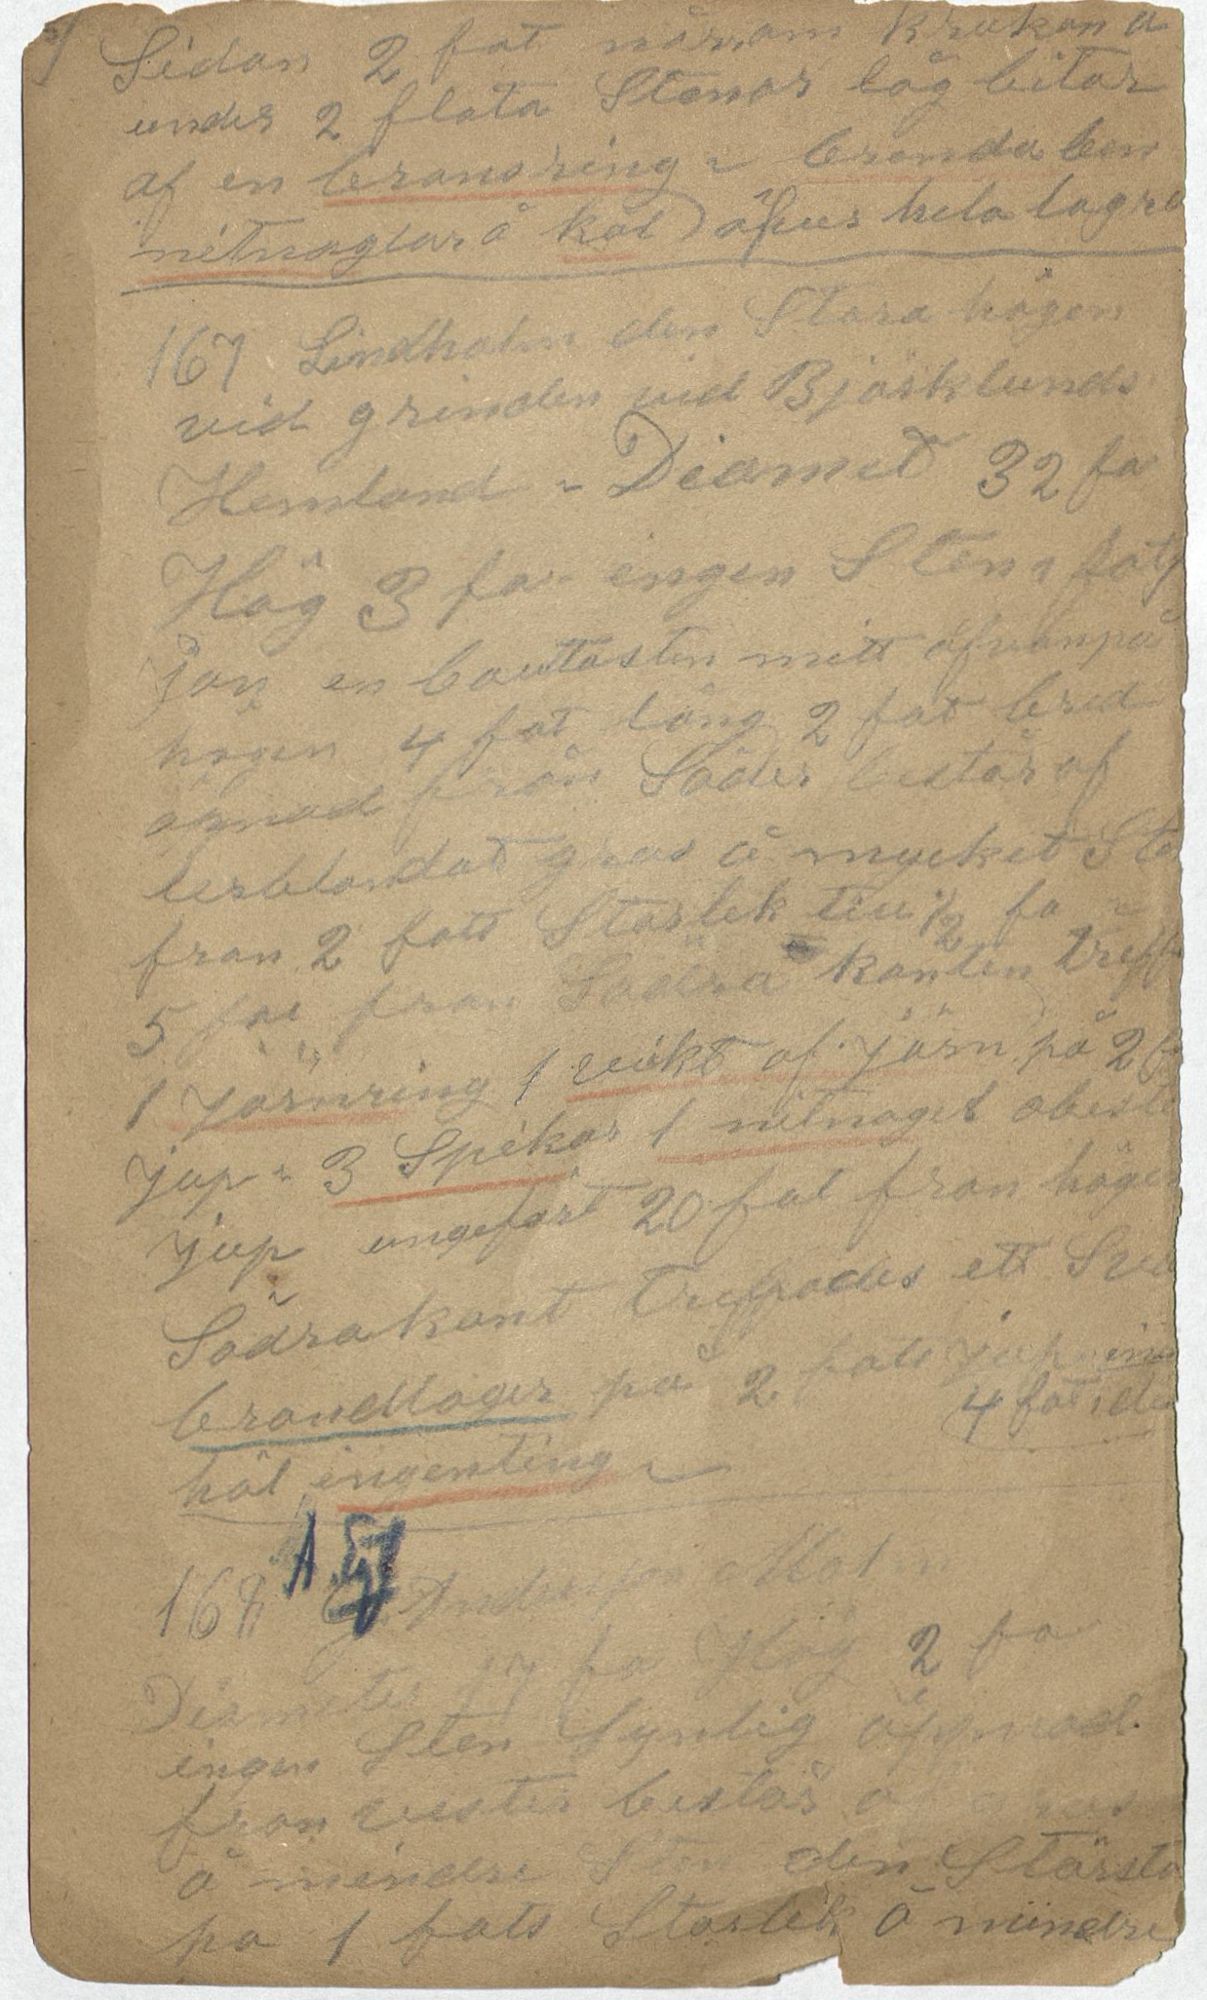 Sidan 2 fot närram krukan a
under 2 flata Stenar låg bitar
af en bronsring - branda ben
nitnaglar å kol öfver hela lagre
167 Lindholm den Stora högen
vid grinden vid Björklunds
Hemland - Diamet 32 fo
Hög 3 fo - ingen Sten fot
en bautasten mitt ofvanpå
högen 4 fot lång 2 fot bred
öpnad från Söder består af
lerblandat grus å mycket Ste
fran 2 fots Storlek till 1/2 fo
5 fot fran Södra kanten treff
1 järnring 1 vikt af järn på 2 f
jup - 3 Spikar 1 nitnagel obest
jup ungefärt 20 fot fran högen
Södra kant treffades ett Sva
brandlager på 2 fots jup in
4 fot i di
höl ingenting
168 A. Ej Andersson Malm
Diameter 17 fo Hög 2 fo
ingen Sten Synlig öppnad
fran vester består a grus
å mindre Sten den Största
pa 1 fots Storlek å mindre